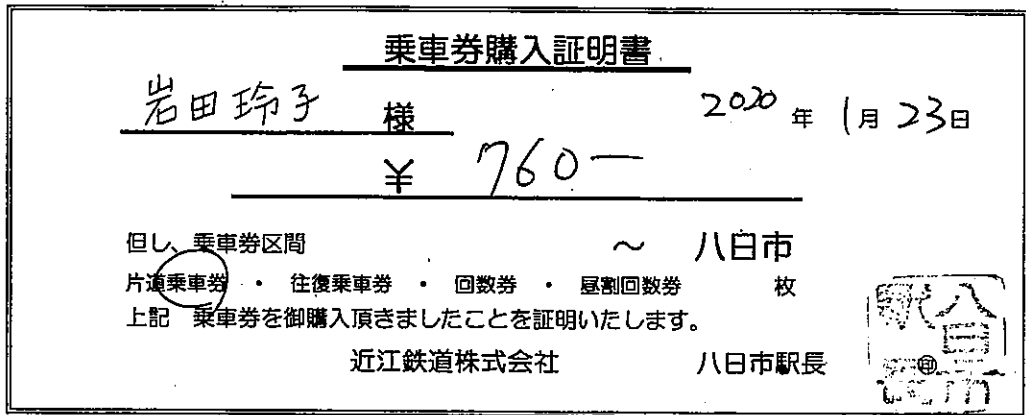 乗車券購入証明書
岩田玲子 様 2020年1月23日
¥ 760ー
但し、乗車券区間 ～ 八日市
片道乗車券 ・ 往復乗車券 ・ 回数券 ・ 昼割回数券 枚
上記 乗車券を御購入頂きましたことを証明いたします。
近江鉄道株式会社 八日市駅長 ㊞